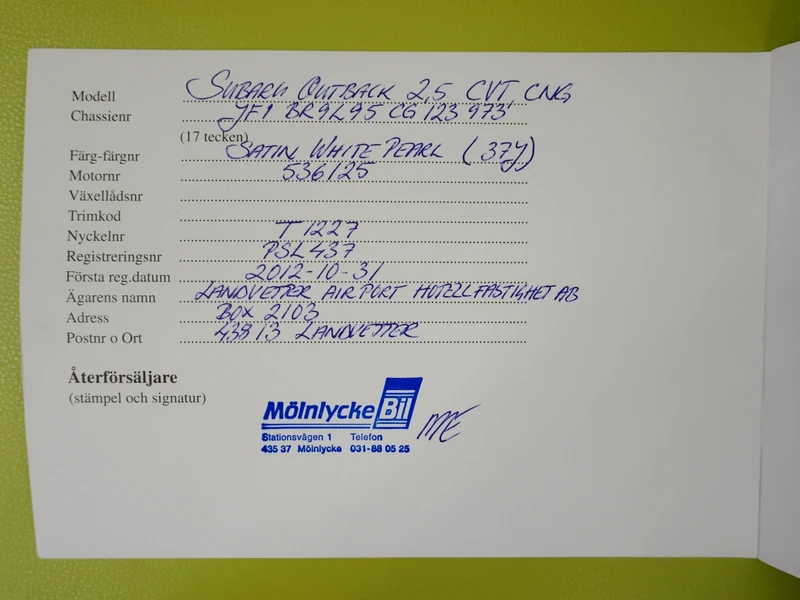 Modell SUBARU OUTBACK 2,5 CVT CNG
Chassienr JF1 BR9L95 CG 123 973
(17 tecken)
Färg-färgnr SATIN WHITE PEARL (37J)
Motornr 536125
Växellådsnr
Trimkod
Nyckelnr T 1227
Registreringsnr PSL 437
Första reg.datum 2012-10-31
Ägarens namn LANDVETTER AIRPORT HOTELLFASTIGHET AB
Adress BOX 2103
Postnr o Ort 438 13 LANDVETTER
Återförsäljare
(stämpel och signatur)
Mölnlycke Bil
Stationsvägen 1 Telefon
435 37 Mölnlycke 031-88 05 25